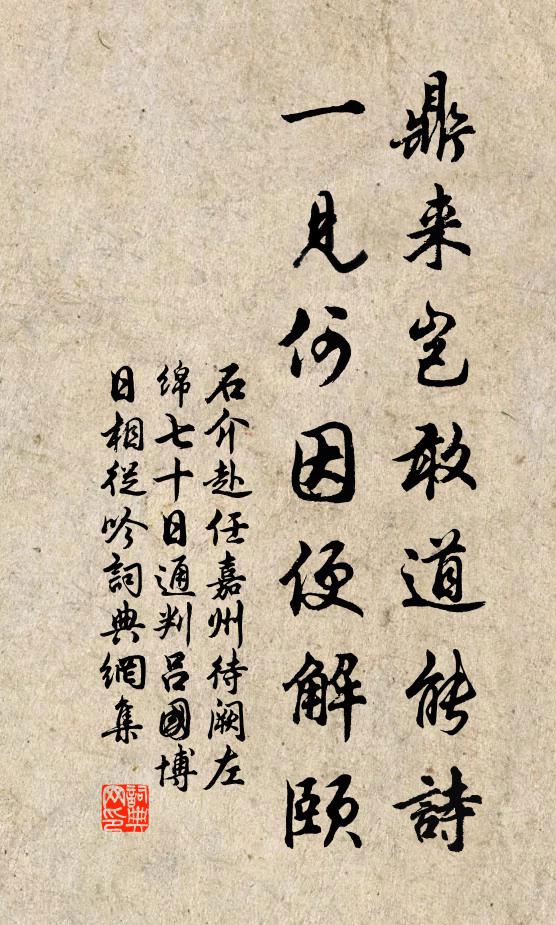 鼎来岂敢道能詩
一見何因便解頤
石介赴任嘉州待阙左
绵七十日通判吕國博
日相從吟詞典網集
詞典
网印